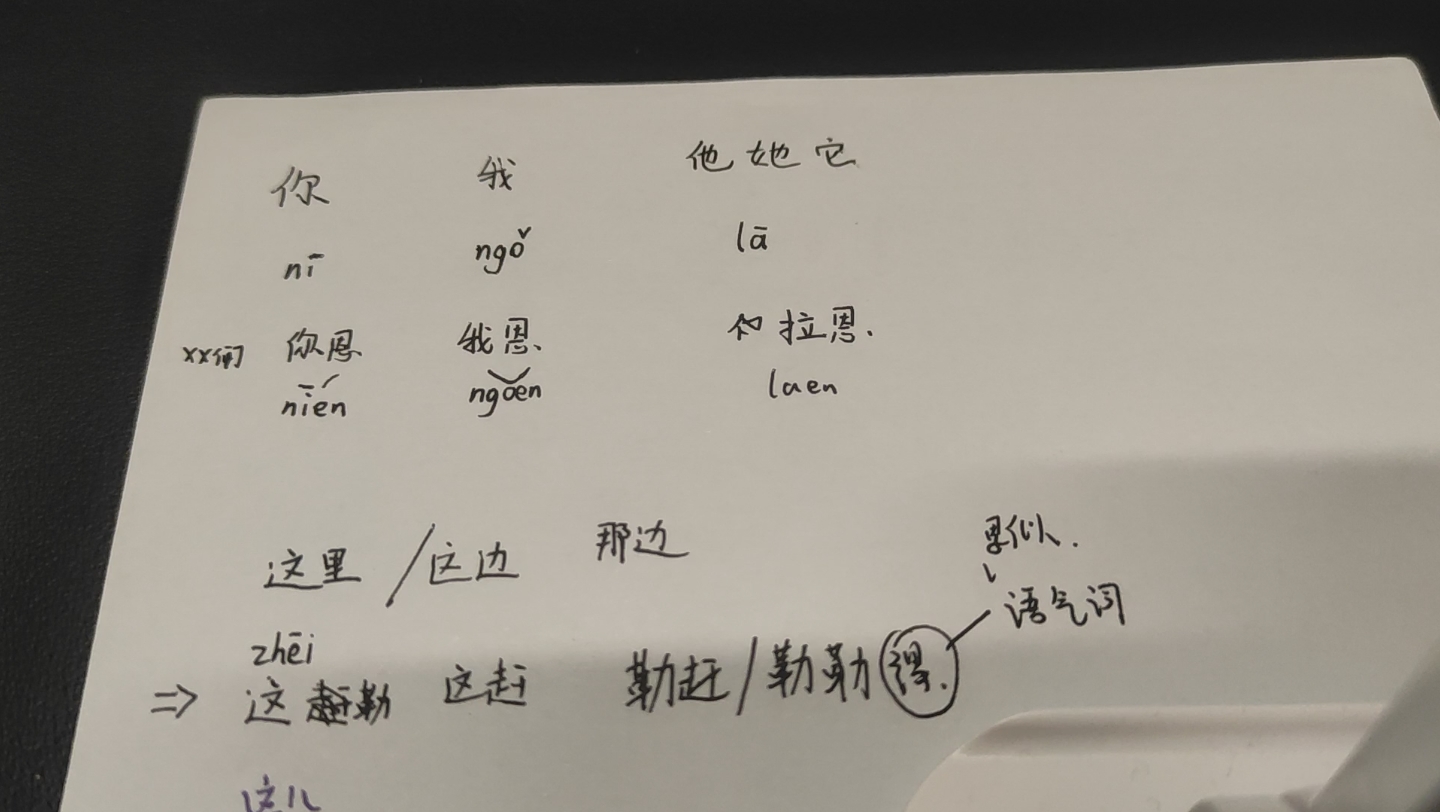 你 我 他她它
nī ngǒ lā
xx们 你恩 我恩、 拉恩.
nīén ngoen laen
这里 / 这边 那边
类似.
语气词
zhēi
⇒ 这勒 这赶 勒赶 / 勒勒得.
这儿